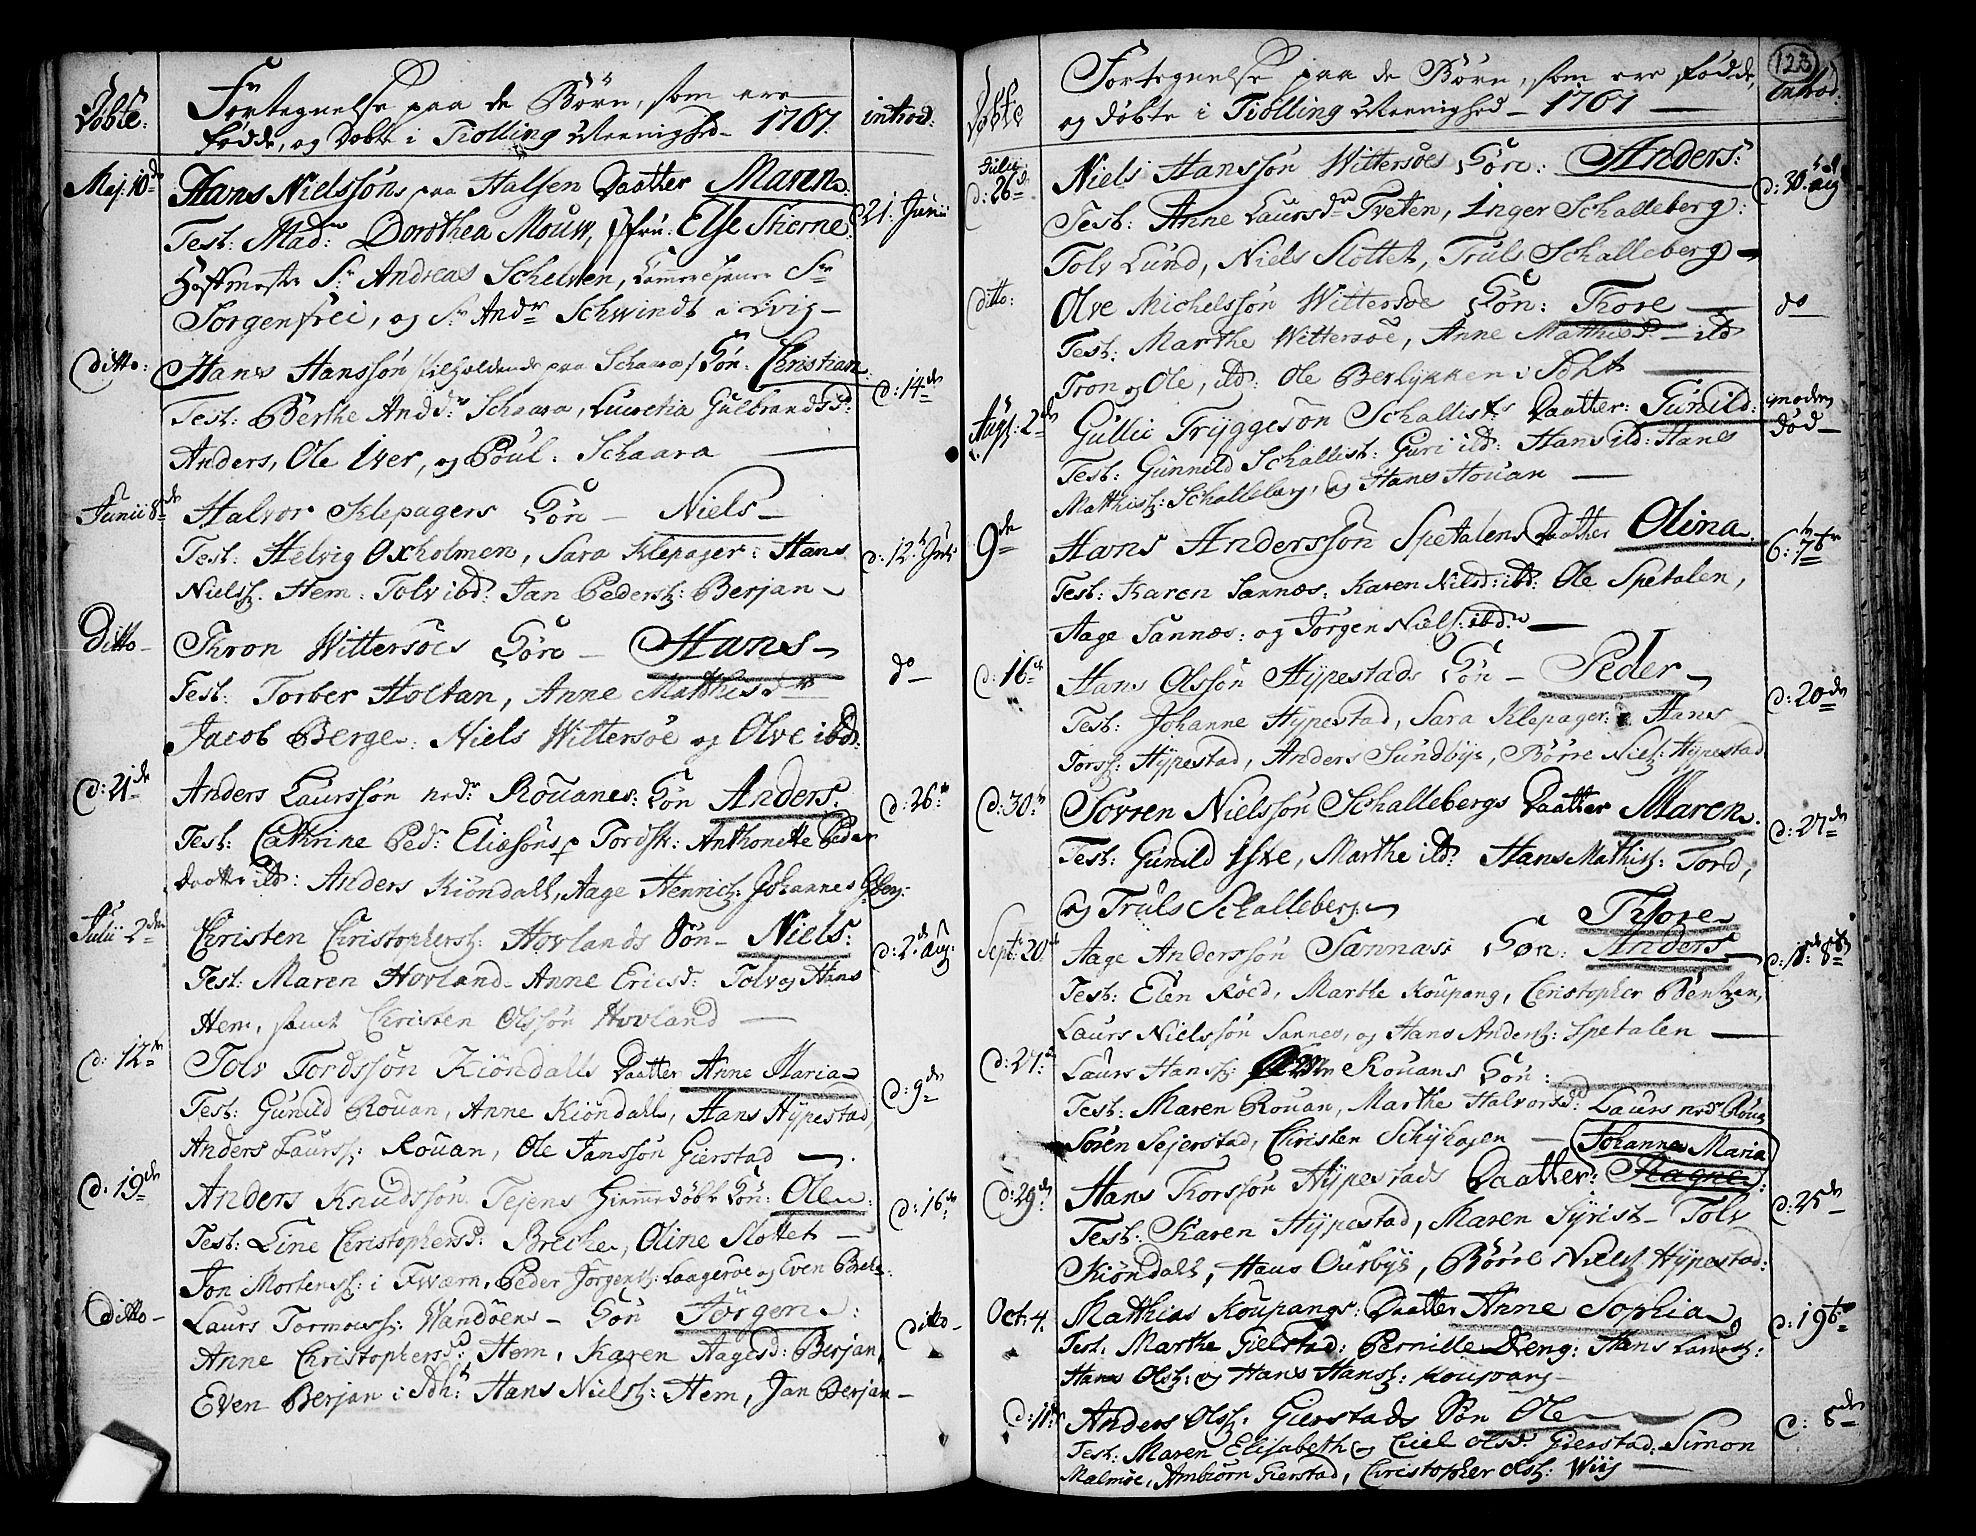 Døbte:
Fortegnelse paa de Børn, som ere
fødde, og Døbte i Tiolling Meenighed - 1767.
introd:
Maj: 10de
Hans Nielssöns paa Halsen Daatter Maren.
21: Junii
Test: Mad: Dorothea Mouw, Jfru: Else Stierne
Hoffmester Sr Andreas Schelven, Sr
Sorgenfrei, og Sr Andr Schwindt i Lvig -
ditto:
Hans Hanssön tilholdende paa Schaara / Sön: Christian
d: 14de
Test: Berthe Andd: Schaara, Lucretia Gulbrandsd:
Anders, Ole Iver, og Poul: Schaara
Junii 8de
Halvor Klepagers Sön - Niels -
Test: Helvig Oxholmen, Sara Klepager: Hans
d: 12te Julii
Nielss: Hem: Tolv ibd: Jan Peders: Berjan -
Ditto -
Thron Wittersöes Sön - Hans -
do -
Test: Torber Holtan, Anne Matthisdr
Jacob Berge: Niels Wittersöe og Olve ibd:
d: 21de
Anders Laurssön nedr Rouanes: Sön Anders.
d: 26te
Test: Cathrine Ped: Eliesöns p Tordsk: Anthonette Peder
daatter ibd: Anders Kiöndall, Aage Henrich: Johannes
Julii 2den
Christen Christophers: Hovlands Sön - Niels:
d: 2de Aug:
Test: Maren Hovland - Anne Ericsd: Tolv og Hans
Hem, samt Christen Olssön Hovland -
d: 12te
Tolv Tordssön Kiöndalls Daatter Anne Maria
d: 9de
Test: Gunild Rouan, Anne Kiöndall, Hans Hÿpestad
Anders Laurss: Rouan, Ole Janssön Gierstad -
d: 19de
Anders Knudssön Tejens Hiemmedöbt Sön: Ole
d: 16de
Test: Line Christophersd: Breche, Oline Slottet -
Jon Mortenss: i Tværn, Peder Jörgens: Laageröe og Even Brek
Ditto -
Laurs Tormowss: Vandöens - Sön Jörgen:
ditto -
Anne Christophersd: Hem, Karen Aagesd: Berjan,
Even Berjan i Sdh: Hans Niels: Hem, Jan Berjan -
Døbte
Fortegnelse paa de Börn, som ere fødde,
og døbte i Tiölling Meenighed - 1767 -
123
Introd:
Julii d: 26de
Niels Hanssön Wittersöes Sön: Anders:
d: 30 Aug
Test: Anne Laursdr Tveten, Inger Schalleberg:
Tolv Lund, Niels Slottet, Truls Schalleberg -
ditto:
Olve Michelssön Wittersöe Sön: Thore -
do -
Test: Marthe Wittersöe, Anne Matthisd - ibd
Tron og Ole, ibd: Ole Berlykken i Sdht
Augt: 2den
Gullic Trÿggesön Schallists Daatter: Gunild:
moderen
död -
Test: Gunnild Schallist: Guri ibd: Hans ibd: Hans
Mathiss: Schalleberg, og Hans Houan -
9de
Hans Anderssön Spetalens Daatter Olina
6: 7br
Test: Karen Sannæs, Karen Nilsd: ibd: Ole Spetalen,
Aage Sannæs: og Jörgen Niels: ibd -
d: 16de
Hans Olssön Hÿpestads Sön - Peder -
d: 20de
Test: Johanne Hÿpestad, Sara Klepager: Hans
Torss: Hÿpestad, Anders Sundbÿe, Börre Niels: Hÿpestad
d: 30te
Sörren Nielssön Schallebergs Daatter Maren.
d: 27de
Test: Gunild Iske, Marthe ibd: Hans Mathiss: Tord,
og Truls Schalleberg -
Thore
Septr 20
Aage Anderssön Sannæss Sön: Anders
d: 11te 8br
Test: Elen Röed, Marthe Koupang, Christopher Bentzen,
Laurs Nielssön Sannes, og Hans Anders: Spetalen -
d: 27de
Laurs Hanss: Rouans Sön:
Test: Maren Rouan, Marthe Halvorsd: Laurs nedr Rouan
Sören Sejerstad, Christen Schÿhagen - Johanna Maria
d: 29de
Hans Thorssön Hÿpestads Daatter: Ragne
d: 25de
Test: Karen Hÿpestad, Maren Syrist - Tolv
Kiöndall, Hans Ourbÿe, Börre Niels: Hÿpestad:
Oct: 4.
Mathias Koupangs: Daatter Anne Sophia
d: 19te
Test: Marthe Gielstad: Pernille Eeng: Hans Laurss:
Hans Olss: og Hans Hanss: Koupang -
d: 11te
Anders Olss: Gierstads Sön Ole
d: 8de
Test: Maren Elisabeth og Ciel Olsd: Gierstad: Simon
Malmöe, Ambiörn Gierstad, Christopher Olss: Wiij -